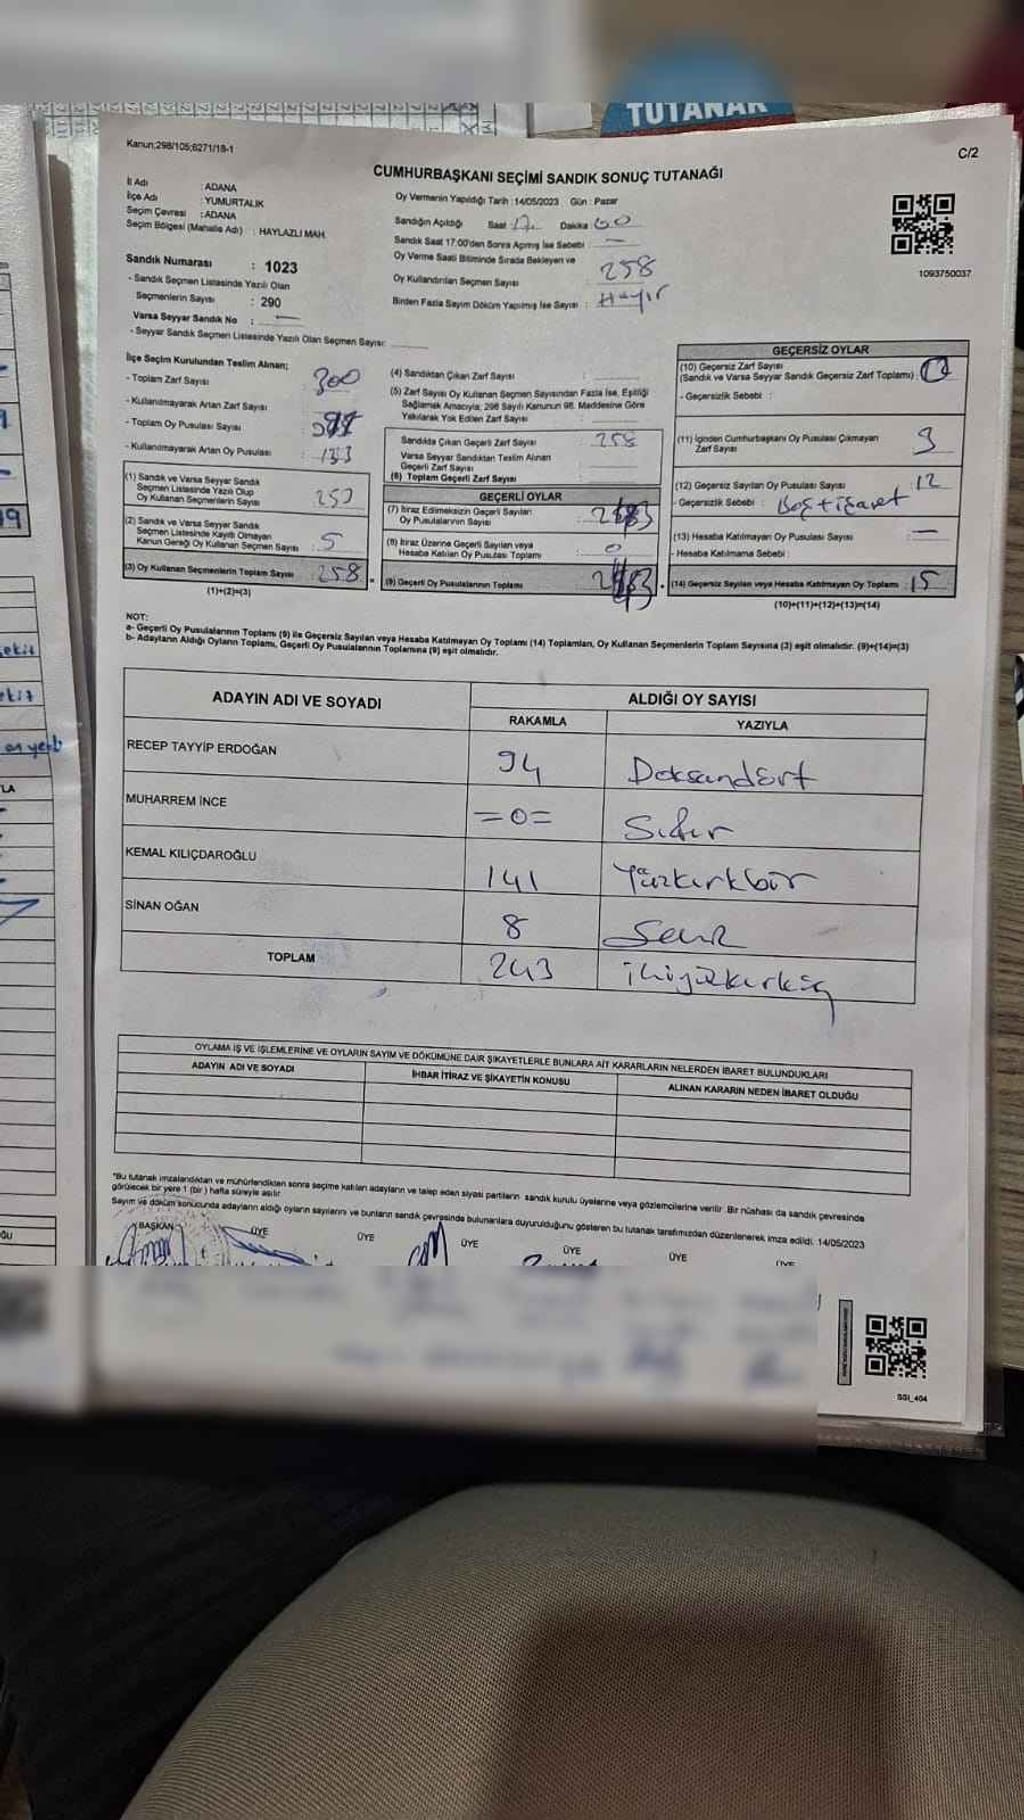 TUTANAK
Kanun;298/105;6271/18-1
C/2
CUMHURBAŞKANI SEÇİMİ SANDIK SONUÇ TUTANAĞI
İl Adı : ADANA
İlçe Adı : YUMURTALIK
Seçim Çevresi : ADANA
Seçim Bölgesi (Mahalle Adı) : HAYLAZLI MAH.
Oy Vermenin Yapıldığı Tarih : 14/05/2023 Gün : Pazar
Sandığın Açıldığı Saat Dakika
Sandık Saat 17:00'den Sonra Açmış İse Sebebi : —
Oy Verme Saati Bitiminde Sırada Bekleyen ve
Oy Kullandırılan Seçmen Sayısı : 258
Birden Fazla Sayım Döküm Yapılmış İse Sayısı : Hayır
1093750037
Sandık Numarası : 1023
- Sandık Seçmen Listesinde Yazılı Olan
Seçmenlerin Sayısı : 290
Varsa Seyyar Sandık No : —
- Seyyar Sandık Seçmen Listesinde Yazılı Olan Seçmen Sayısı:
İlçe Seçim Kurulundan Teslim Alınan;
- Toplam Zarf Sayısı : 300
- Kullanılmayarak Artan Zarf Sayısı :
- Toplam Oy Pusulası Sayısı :
- Kullanılmayarak Artan Oy Pusulası :
(1) Sandık ve Varsa Seyyar Sandık
Seçmen Listesinde Yazılı Olup
Oy Kullanan Seçmenlerin Sayısı : 253
(2) Sandık ve Varsa Seyyar Sandık
Seçmen Listesinde Kayıtlı Olmayan
Kanun Gereği Oy Kullanan Seçmen Sayısı : 5
(3) Oy Kullanan Seçmenlerin Toplam Sayısı : 258
(1)+(2)=(3)
(4) Sandıktan Çıkan Zarf Sayısı :
(5) Zarf Sayısı Oy Kullanan Seçmen Sayısından Fazla İse, Eşitliği
Sağlamak Amacıyla; 298 Sayılı Kanunun 98. Maddesine Göre
Yakılarak Yok Edilen Zarf Sayısı :
Sandıkta Çıkan Geçerli Zarf Sayısı : 258
Varsa Seyyar Sandıktan Teslim Alınan
Geçerli Zarf Sayısı
(6) Toplam Geçerli Zarf Sayısı
GEÇERLİ OYLAR
(7) İtiraz Edilmeksizin Geçerli Sayılan
Oy Pusulalarının Sayısı :
(8) İtiraz Üzerine Geçerli Sayılan veya
Hesaba Katılan Oy Pusulası Toplamı : 0
(9) Geçerli Oy Pusulalarının Toplamı :
GEÇERSİZ OYLAR
(10) Geçersiz Zarf Sayısı
(Sandık ve Varsa Seyyar Sandık Geçersiz Zarf Toplamı) :
- Geçersizlik Sebebi :
(11) İçinden Cumhurbaşkanı Oy Pusulası Çıkmayan
Zarf Sayısı : 3
(12) Geçersiz Sayılan Oy Pusulası Sayısı : 12
- Geçersizlik Sebebi : Boş+işaret
(13) Hesaba Katılmayan Oy Pusulası Sayısı : —
- Hesaba Katılmama Sebebi :
(14) Geçersiz Sayılan veya Hesaba Katılmayan Oy Toplamı : 15
(10)+(11)+(12)+(13)=(14)
NOT:
a- Geçerli Oy Pusulalarının Toplamı (9) ile Geçersiz Sayılan veya Hesaba Katılmayan Oy Toplamı (14) Toplamları, Oy Kullanan Seçmenlerin Toplam Sayısına (3) eşit olmalıdır. (9)+(14)=(3)
b- Adayların Aldığı Oyların Toplamı, Geçerli Oy Pusulalarının Toplamına (9) eşit olmalıdır.
ADAYIN ADI VE SOYADI
ALDIĞI OY SAYISI
RAKAMLA YAZIYLA
RECEP TAYYİP ERDOĞAN 94 Doksandört
MUHARREM İNCE =0= Sıfır
KEMAL KILIÇDAROĞLU 141 Yüzkırkbir
SİNAN OĞAN 8 Sekiz
TOPLAM 243 ikiyüzkırküç
OYLAMA İŞ VE İŞLEMLERİNE VE OYLARIN SAYIM VE DÖKÜMÜNE DAİR ŞİKAYETLERLE BUNLARA AİT KARARLARIN NELERDEN İBARET BULUNDUKLARI
ADAYIN ADI VE SOYADI İHBAR İTİRAZ VE ŞİKAYETİN KONUSU ALINAN KARARIN NEDEN İBARET OLDUĞU
*Bu tutanak imzalandıktan ve mühürlendikten sonra seçime katılan adayların ve talep eden siyasi partilerin sandık kurulu üyelerine veya gözlemcilerine verilir. Bir nüshası da sandık çevresinde
görülecek bir yere 1 (bir) hafta süreyle asılır.
Sayım ve döküm sonucunda adayların aldığı oyların sayılarını ve bunların sandık çevresinde bulunanlara duyurulduğunu gösteren bu tutanak tarafımızdan düzenlenerek imza edildi. 14/05/2023
BAŞKAN ÜYE ÜYE ÜYE ÜYE ÜYE ÜYE